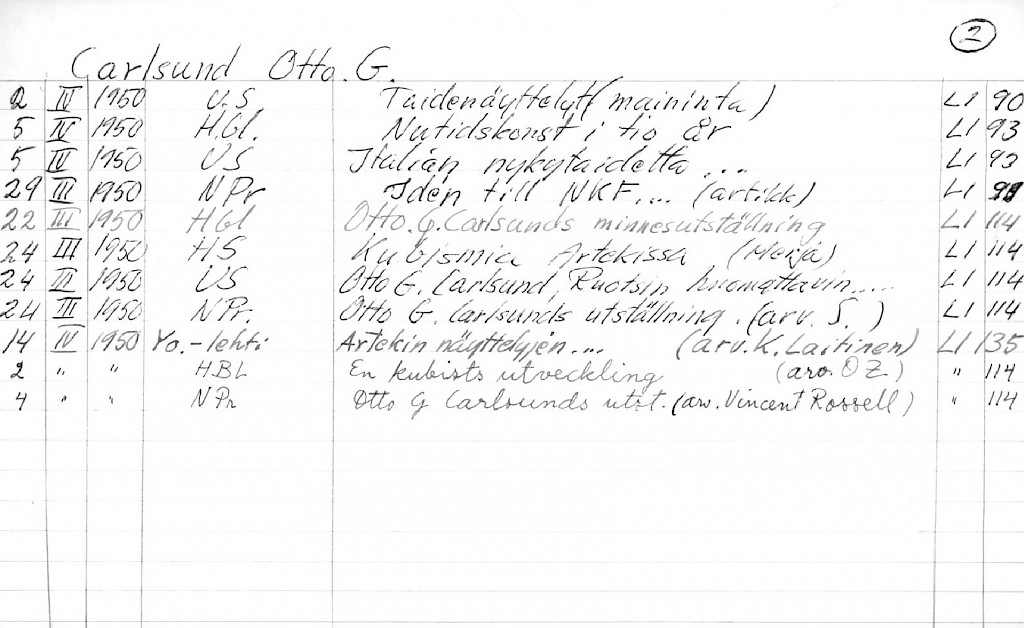 2
Carlsund Otto. G.
2 IV 1950 U.S Taidenäyttelyt (maininta) LI 90
5 IV 1950 Hbl. Nutidskonst i tio år LI 93
5 IV 1950 US Italian nykytaidetta ... LI 93
29 III 1950 NPr Iden till NKF.... (artikk) LI
22 III 1950 Hbl Otto. G. Carlsunds minnesutställning LI 114
24 III 1950 HS Kubismia Artekissa (Merja) LI 114
24 III 1950 US Otto G. Carlsund, Ruotsin huomattavin..... LI 114
24 III 1950 NPr. Otto G. Carlsunds utställning. (arv. S. ) LI 114
14 IV 1950 Yo.-lehti Artekin näyttelyjen.... (arv. K. Laitinen) LI 135
2 " " HBL En kubists utveckling (arv. OZ) " 114
4 " " NPr Otto G Carlsunds utst. (arv. Vincent Rossell) " 114